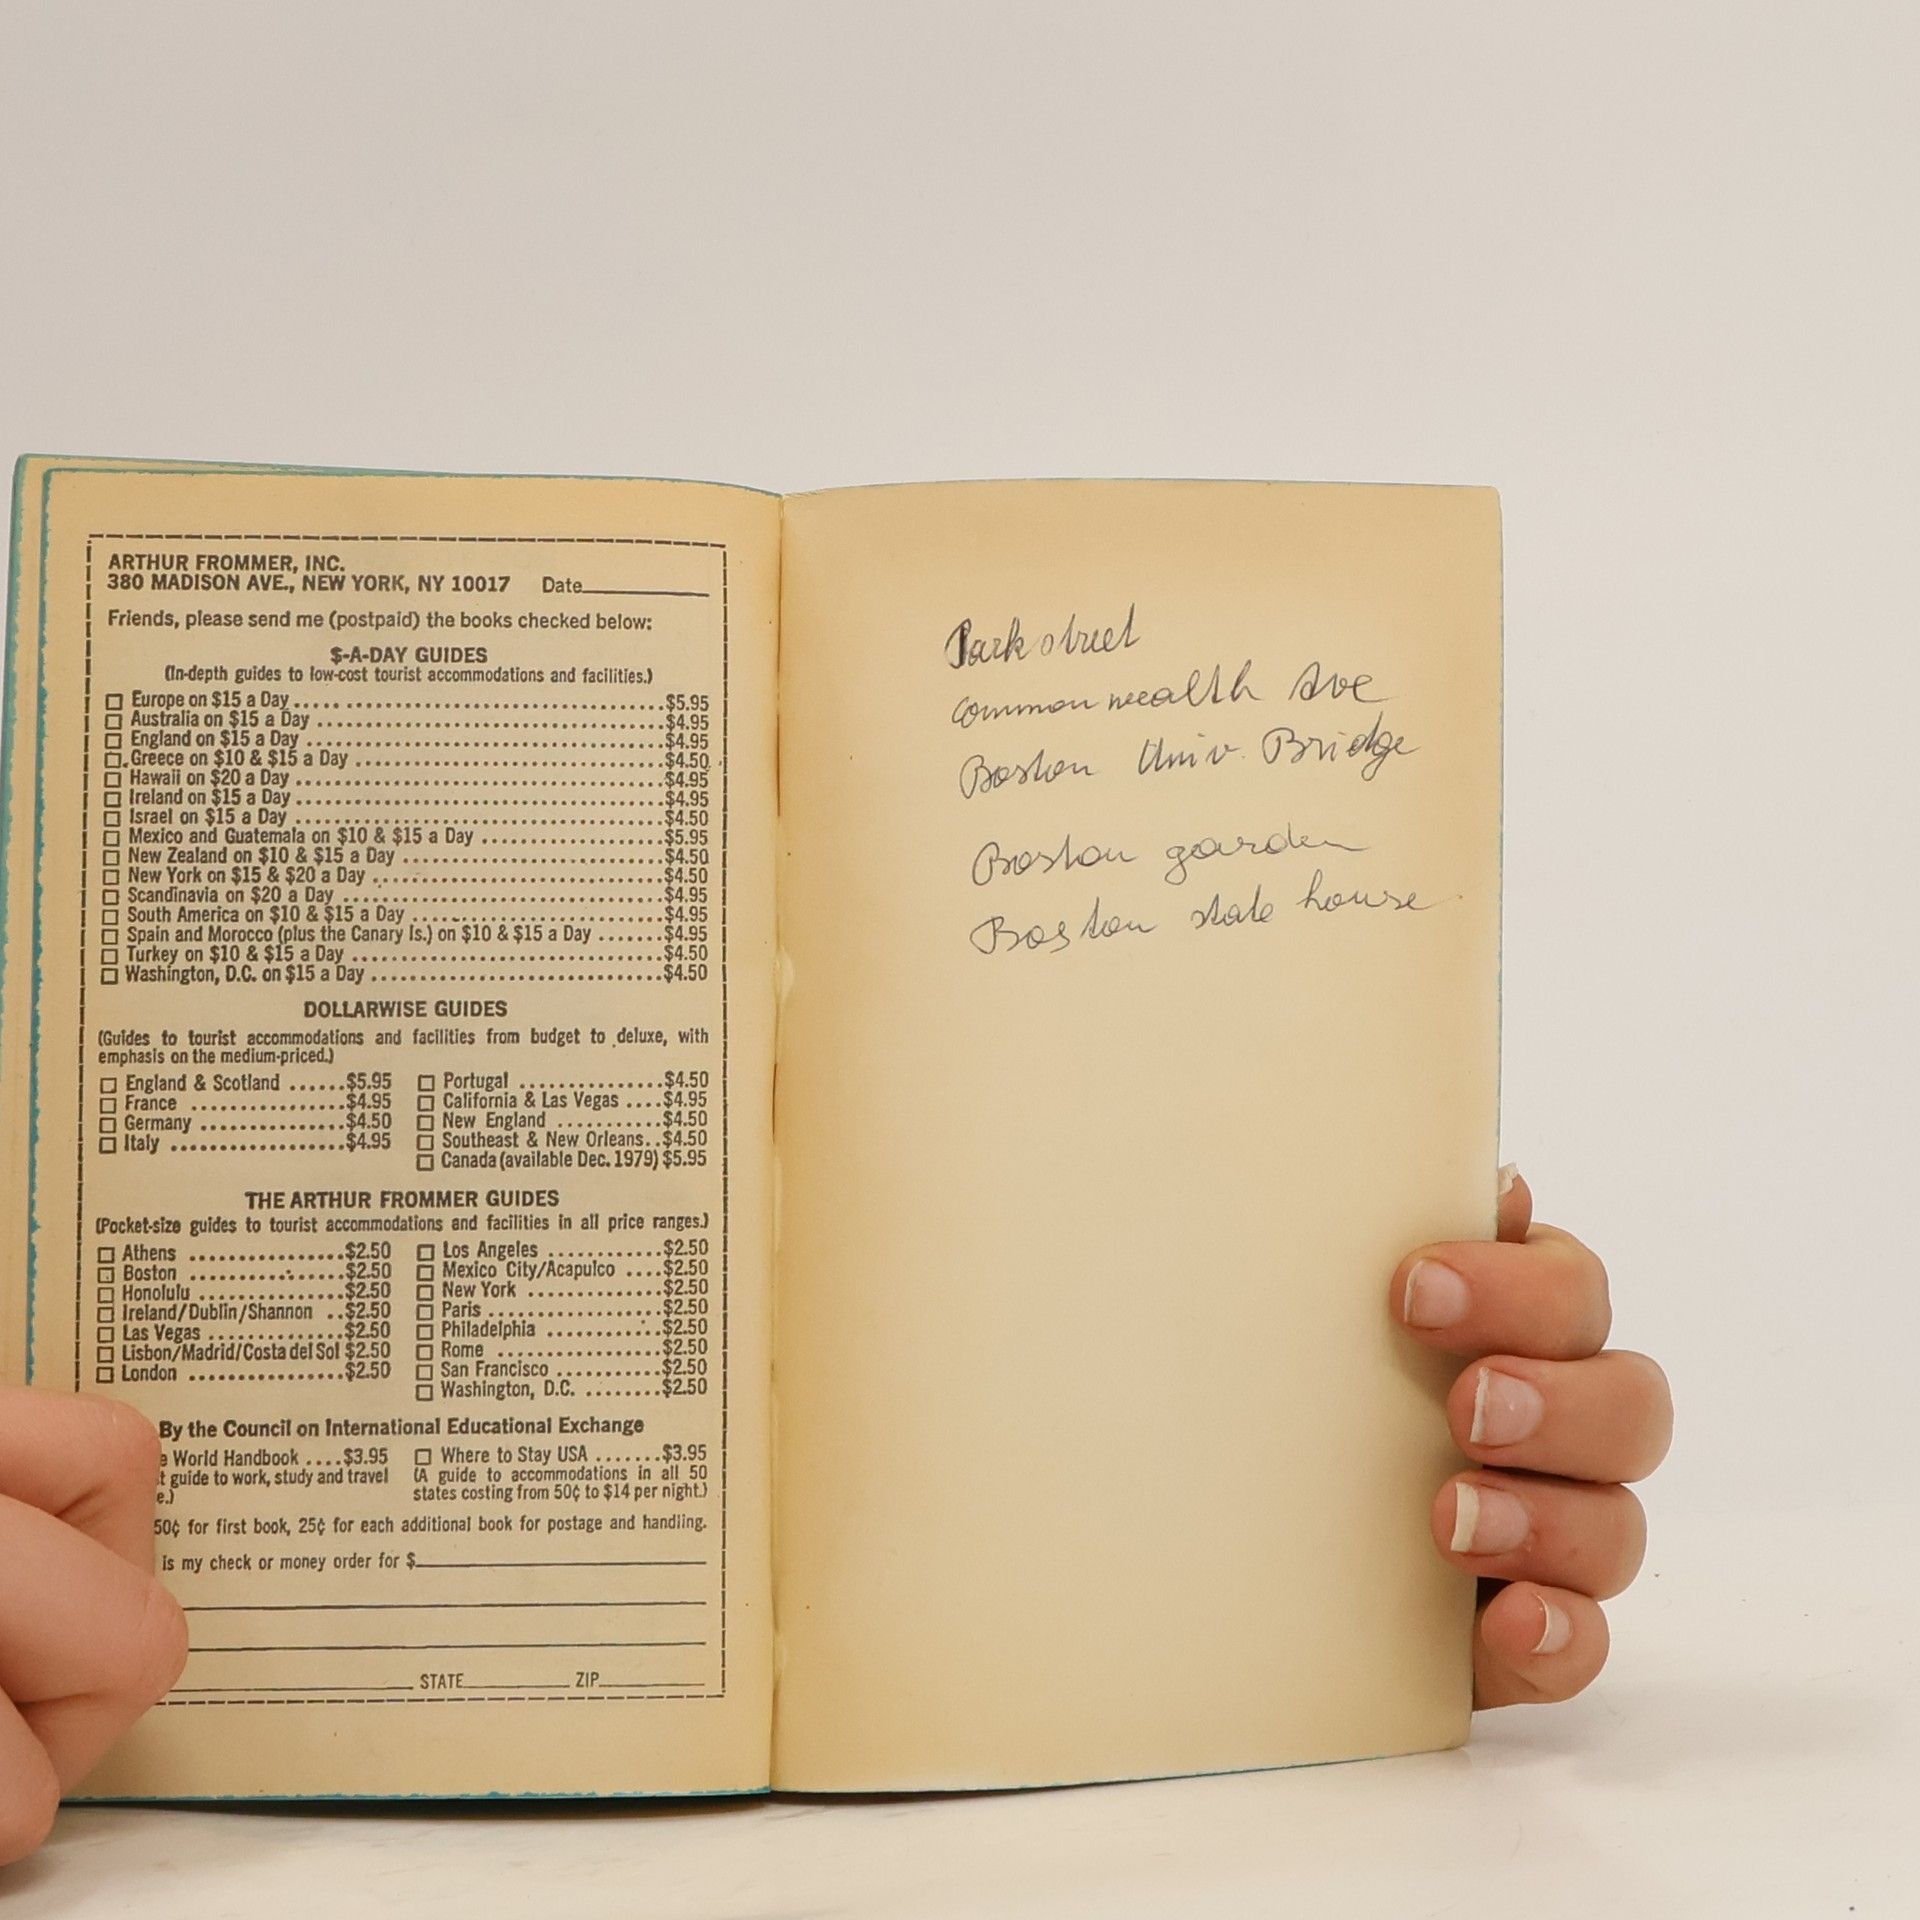 ARTHUR FROMMER, INC.
380 MADISON AVE., NEW YORK, NY 10017 Date
Friends, please send me (postpaid) the books checked below:
$-A-DAY GUIDES
(In-depth guides to low-cost tourist accommodations and facilities.)
Europe on $15 a Day $5.95
Australia on $15 a Day $4.95
England on $15 a Day $4.95
Greece on $10 & $15 a Day $4.50
Hawaii on $20 a Day $4.95
Ireland on $15 a Day $4.95
Israel on $15 a Day $4.50
Mexico and Guatemala on $10 & $15 a Day $5.95
New Zealand on $10 & $15 a Day $4.50
New York on $15 & $20 a Day $4.50
Scandinavia on $20 a Day $4.95
South America on $10 & $15 a Day $4.95
Spain and Morocco (plus the Canary Is.) on $10 & $15 a Day $4.95
Turkey on $10 & $15 a Day $4.50
Washington, D.C. on $15 a Day $4.50
DOLLARWISE GUIDES
(Guides to tourist accommodations and facilities from budget to deluxe, with
emphasis on the medium-priced.)
England & Scotland $5.95
France $4.95
Germany $4.50
Italy $4.95
Portugal $4.50
California & Las Vegas $4.95
New England $4.50
Southeast & New Orleans $4.50
Canada (available Dec. 1979) $5.95
THE ARTHUR FROMMER GUIDES
(Pocket-size guides to tourist accommodations and facilities in all price ranges.)
Athens $2.50
Boston $2.50
Honolulu $2.50
Ireland/Dublin/Shannon $2.50
Las Vegas $2.50
Lisbon/Madrid/Costa del Sol $2.50
London $2.50
Los Angeles $2.50
Mexico City/Acapulco $2.50
New York $2.50
Paris $2.50
Philadelphia $2.50
Rome $2.50
San Francisco $2.50
Washington, D.C. $2.50
By the Council on International Educational Exchange
World Handbook $3.95
guide to work, study and travel
Where to Stay USA $3.95
(A guide to accommodations in all 50
states costing from 50¢ to $14 per night.)
50¢ for first book, 25¢ for each additional book for postage and handling.
is my check or money order for $
STATE ZIP
Park street
commonwealth Ave
Boston Univ. Bridge
Boston garden
Boston state house